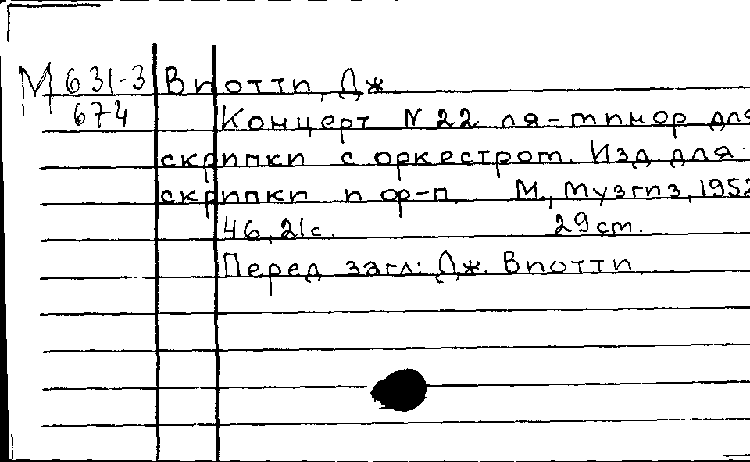 М 631-3 Виотти, Дж
674 Концерт N 22 ля-минор для
скрипки с оркестром. Изд для
скрипки и ф-п. М., Музгиз, 1952
46, 21с. 29 cm.
Перед загл: Дж. Виотти